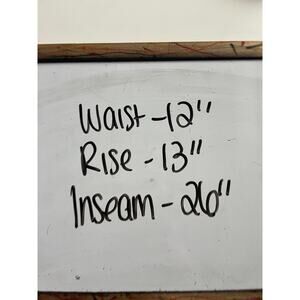 Waist -12"
Rise - 13"
Inseam - 26"